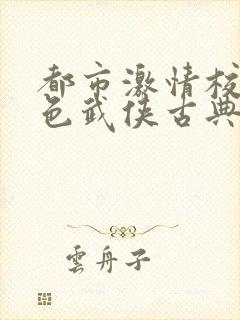 都市激情校
色武侠古典
雲舟子